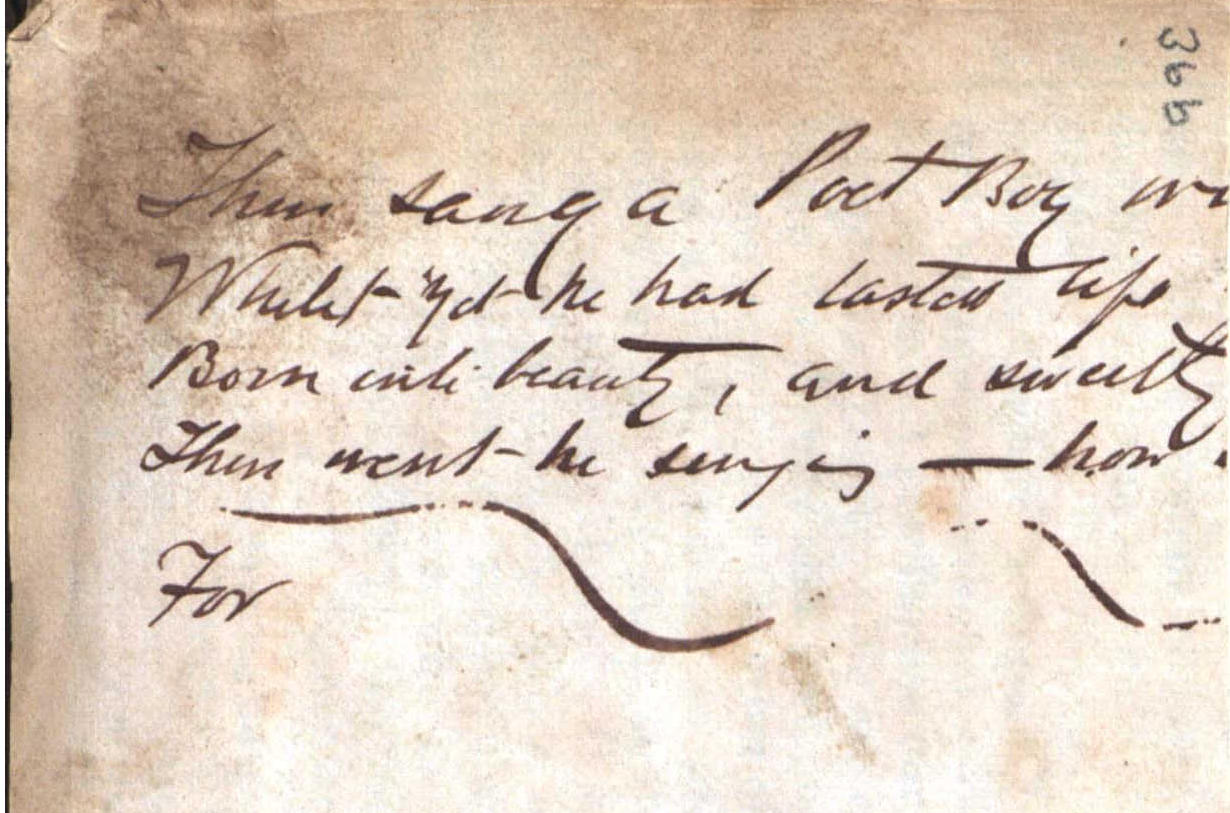 366
Thus sang a Poet Boy
Whilst yet he had tasted life
Born into beauty, and sweetly
Then went he singing — how
For